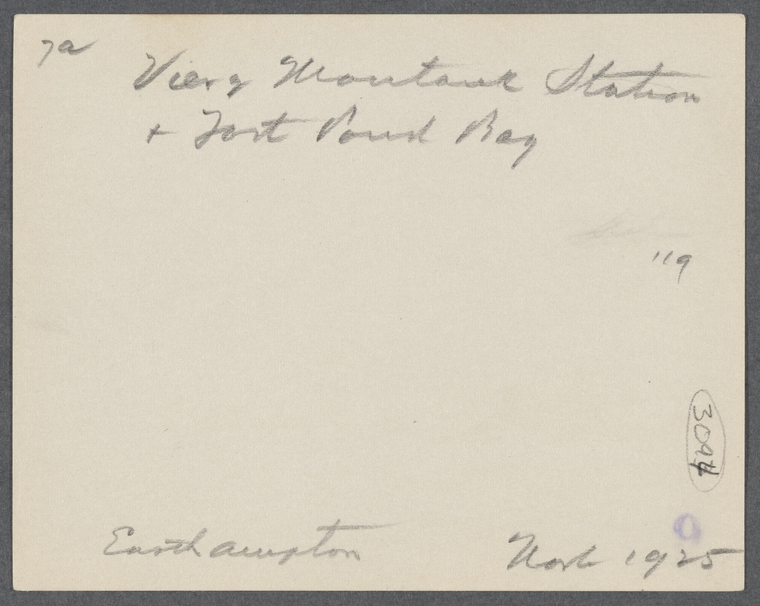 7a
View Montauk Station
+ Fort Pond Bay
119
3094
Easthampton
Nov 1925